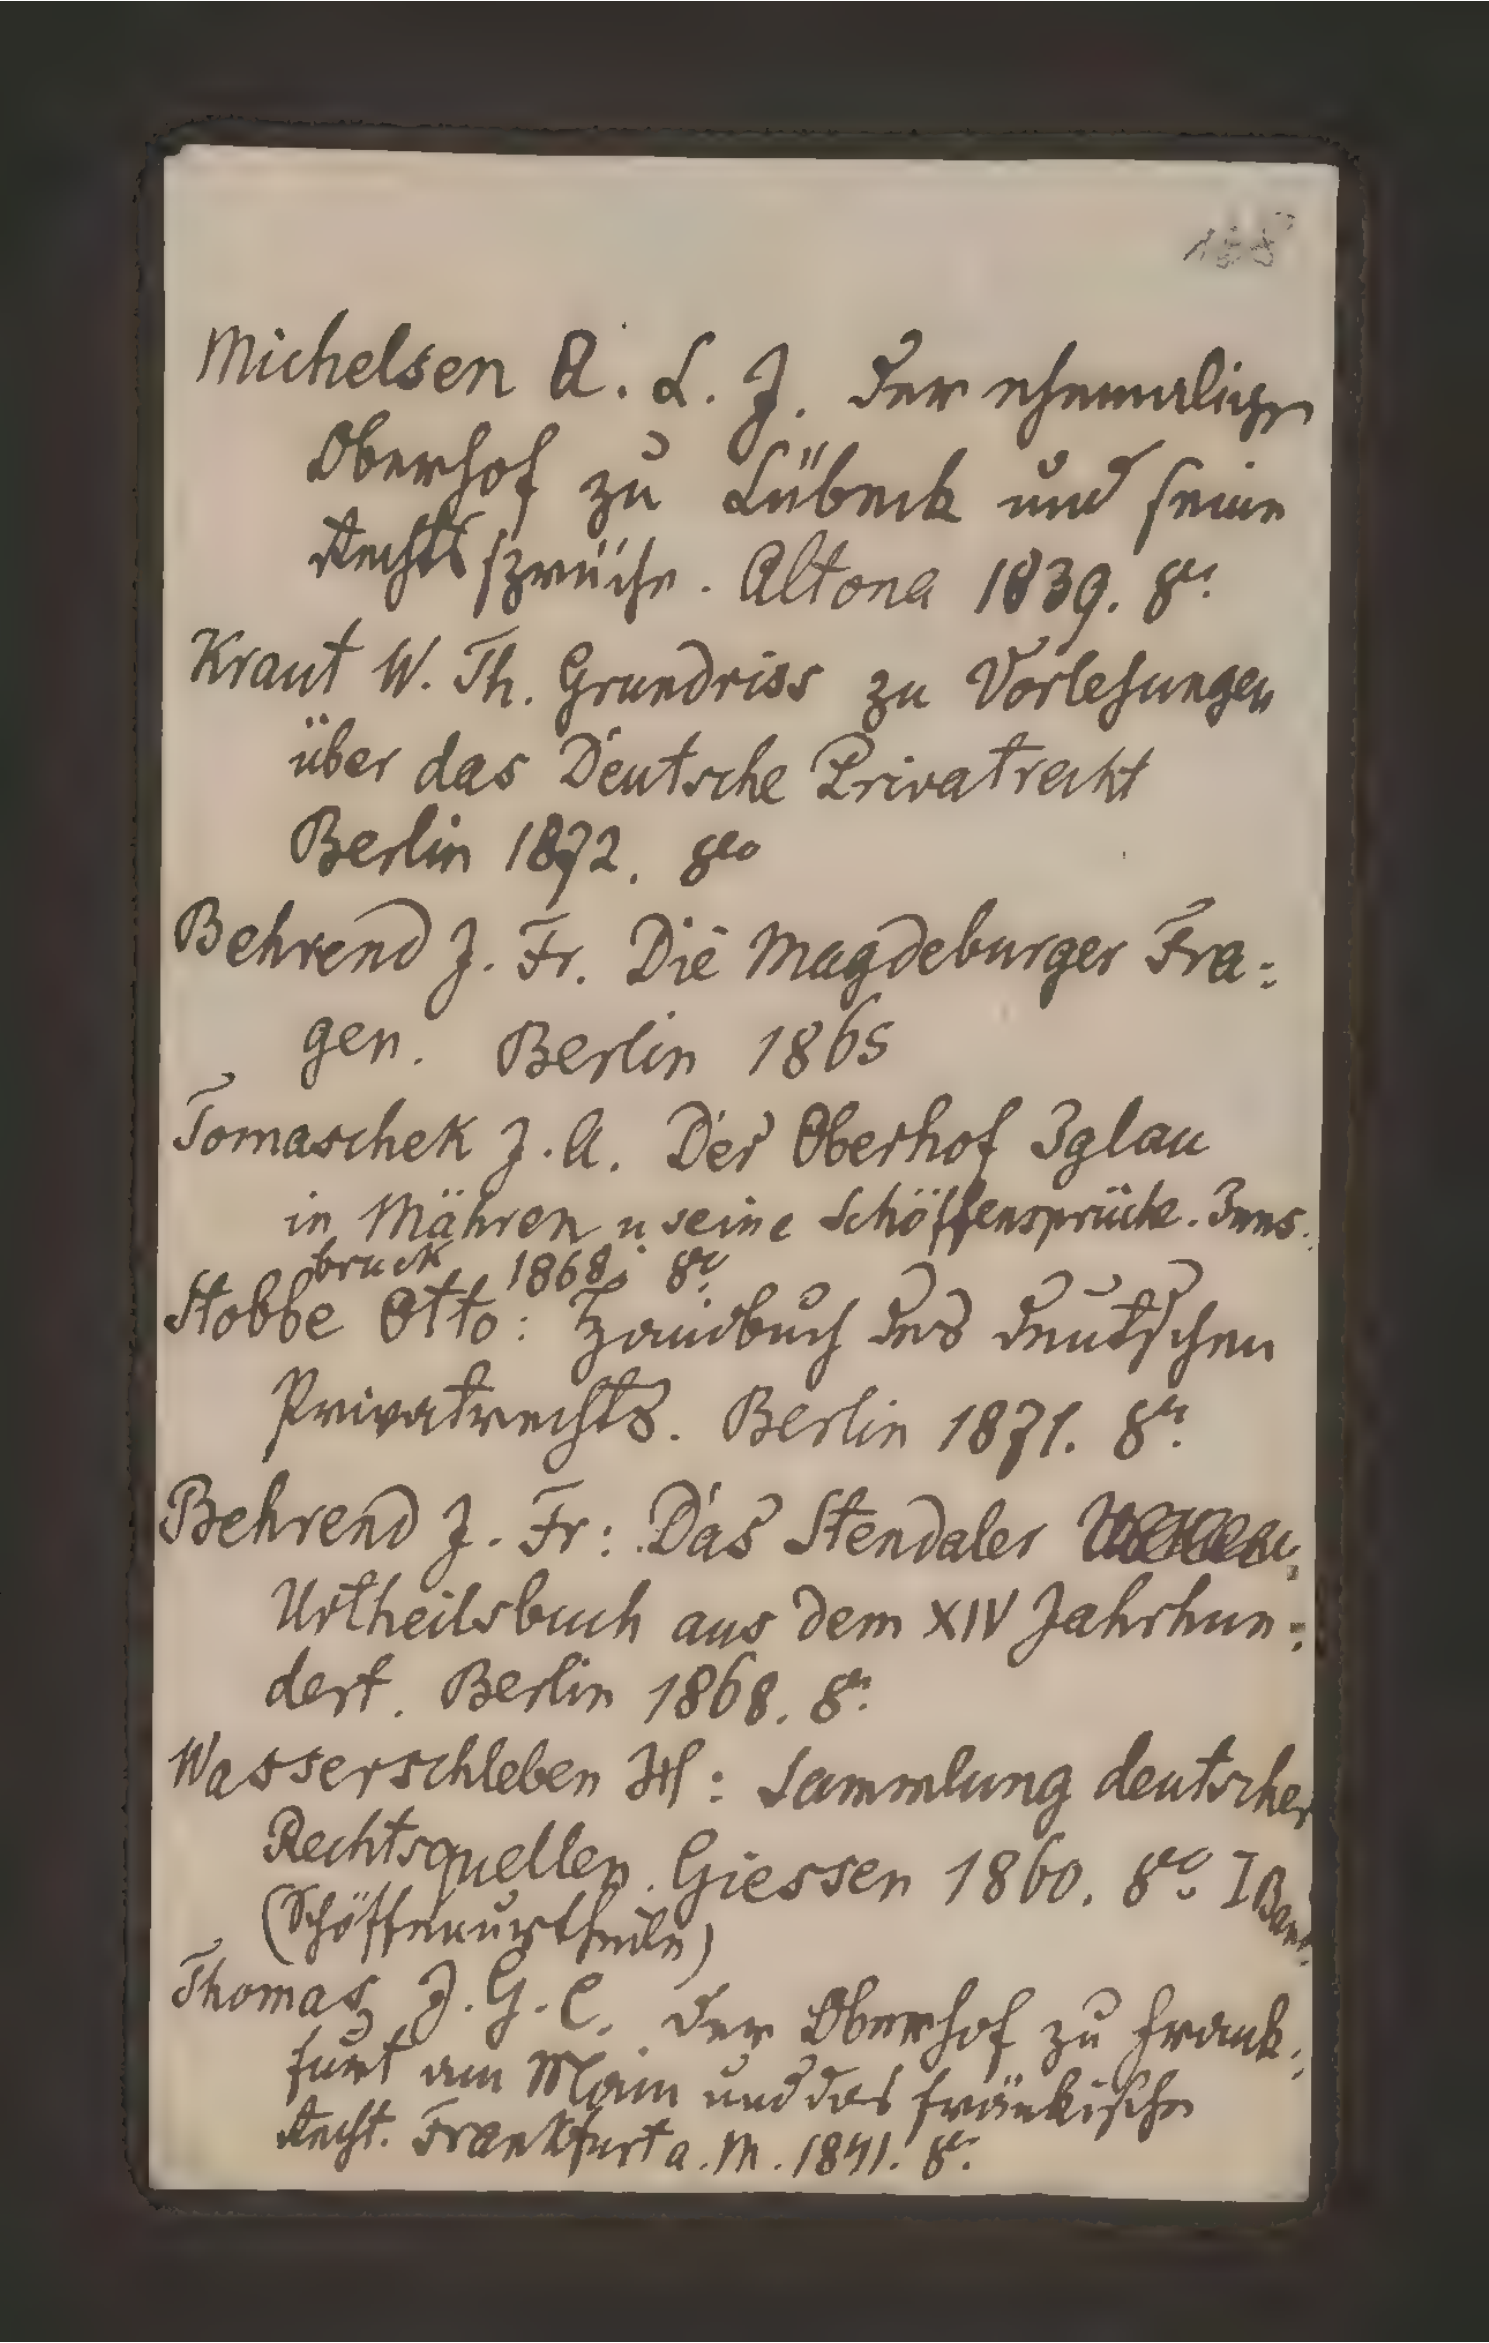 Michelsen A. L. J. Der ehemalige
Oberhof zu Lübeck und seine
Rechtssprüche. Altona 1839. 8º.
Kraut W. Th. Grundriss zu Vorlesungen
über das Deutsche Privatrecht
Berlin 1872. 8vo
Behrend J. Fr. Die Magdeburger Fra:
gen. Berlin 1865
Tomaschek J. A. Der Oberhof Iglau
in Mähren u seine Schöffensprüche. Inns:
bruck 1868. 8º.
Stobbe Otto: Handbuch des deutschen
Privatrechts. Berlin 1871. 8º.
Behrend J. Fr: Das Stendaler
Urtheilsbuch aus dem XIV Jahrhun:
dert. Berlin 1868. 8º.
Wasserschleben H: Sammlung deutscher
Rechtsquellen. Giessen 1860. 8vo. I Band.
(Schöffenurtheile)
Thomas J. G. C. Der Oberhof zu Frank:
furt am Main und das fränkische
Recht. Frankfurt a. M. 1841. 8º.